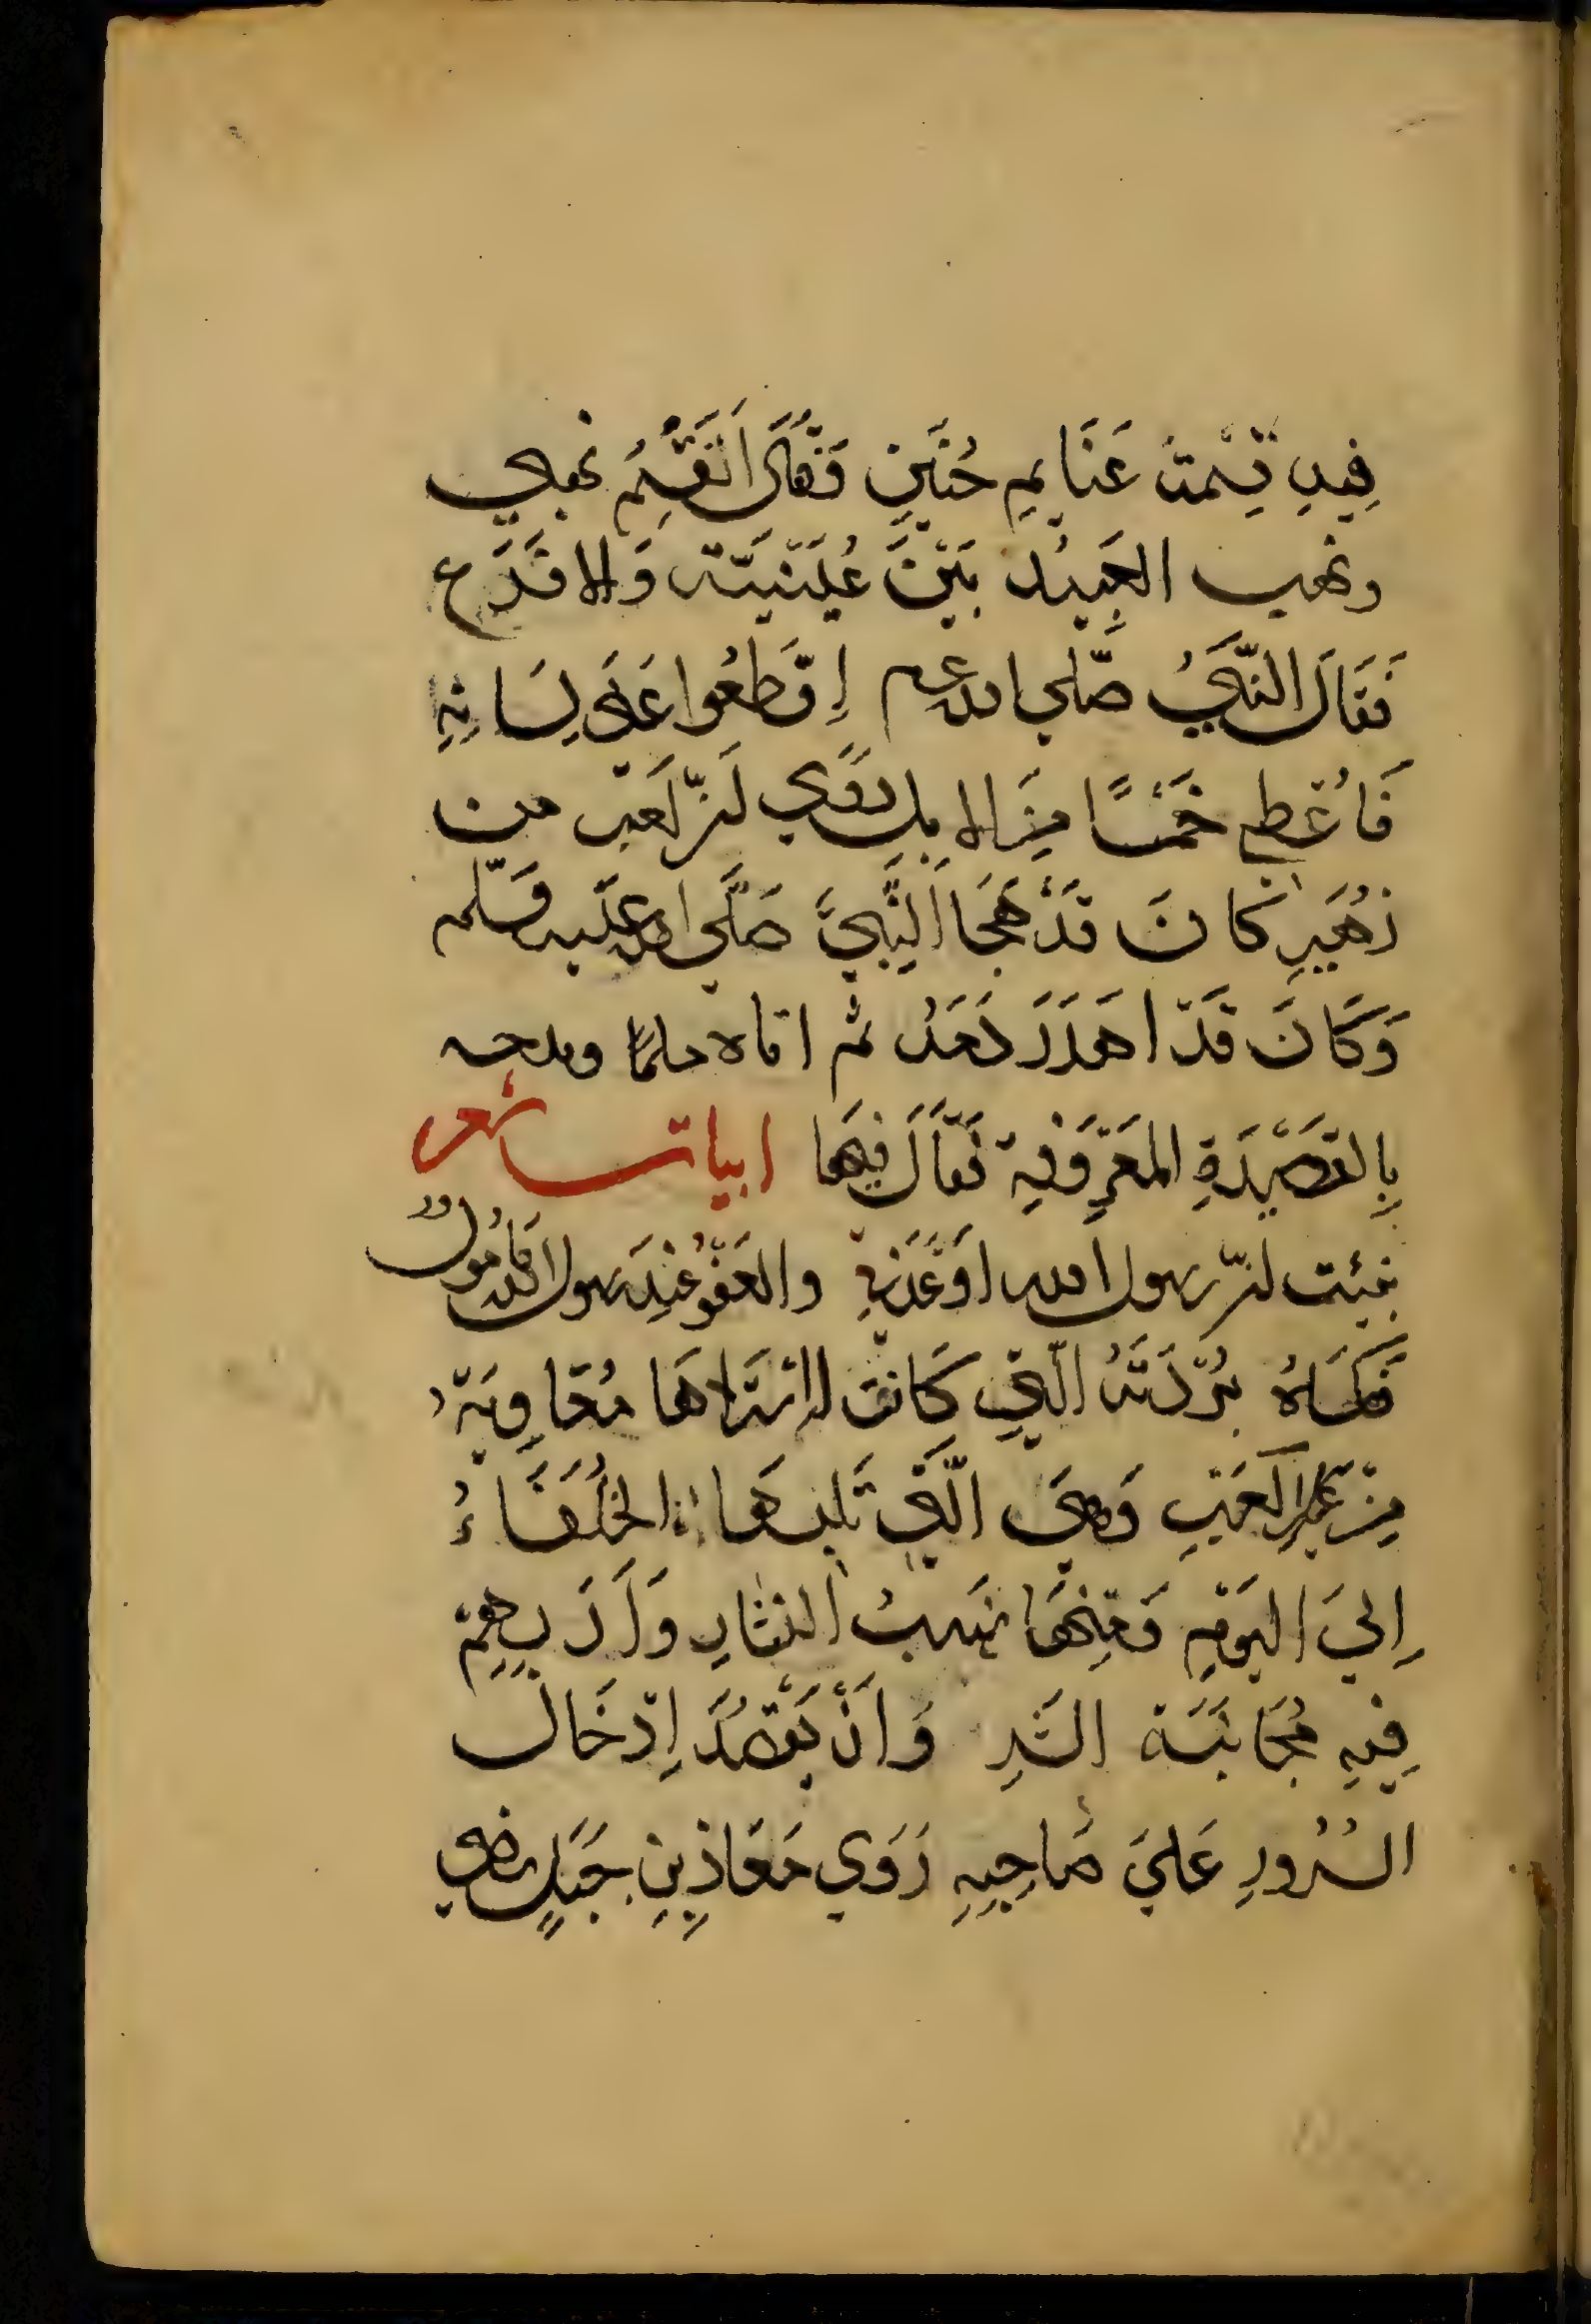 فِيهِ قِسْمَت غَنَايِمِ حُنَيْنٍ فَقَالَ اَتَقْسِمُ نهبي
ونهب العبيد بَيْنَ عُيَيْنَيَة وَالاقْرَعِ
فَقَالَ النَّبِيُّ صَلّي الله عم اِقْطَعُوا عَنّي لِسَانِهِ
فَاُعْطي خَمْسًا مِنَ الابِلِ رَوَي اَنّ كَعب من
زُهَيْرِ كَانَ قَدْ هَجَا النَّبِيَّ صَلَّي الله عَلَيه وسَلم
وَكَانَ قَدْ اهَدَرَ دَمَهُ ثم اتاه مسلما ومدحه
بِالقَصِيْدَةِ المَعْرُوفِة فَقَالَ فِيهَا ابيات شعر
نبئت انّ رسول الله اَوْعَدَنِي والعَفْوُ عِنْدَ رسول الله مَأمُولُ
فَكَسَاهُ بُرْدَتَهُ الَّتِي كَانَت اشْتَرَاهَا مُعَاوِيَة
مِنْ آلِ كَعْبِ وَهِيَ الَّتِي تَلبسهَا الخُلَفَاءُ
اِلَيَ اليَوْمِ وَمِنْهَا نَهبُ النثَارِ وَاَدَبِهِمْ
فِيهِ مُجَانَبَة الشَرِ وَاَنْ يَقْصُدَ اِدْخَالَ
السُرُورِ عَلَيَ صَاحِبِهِ رَوَي مَعَاذِ بِنِ جَبَلٍ رضي